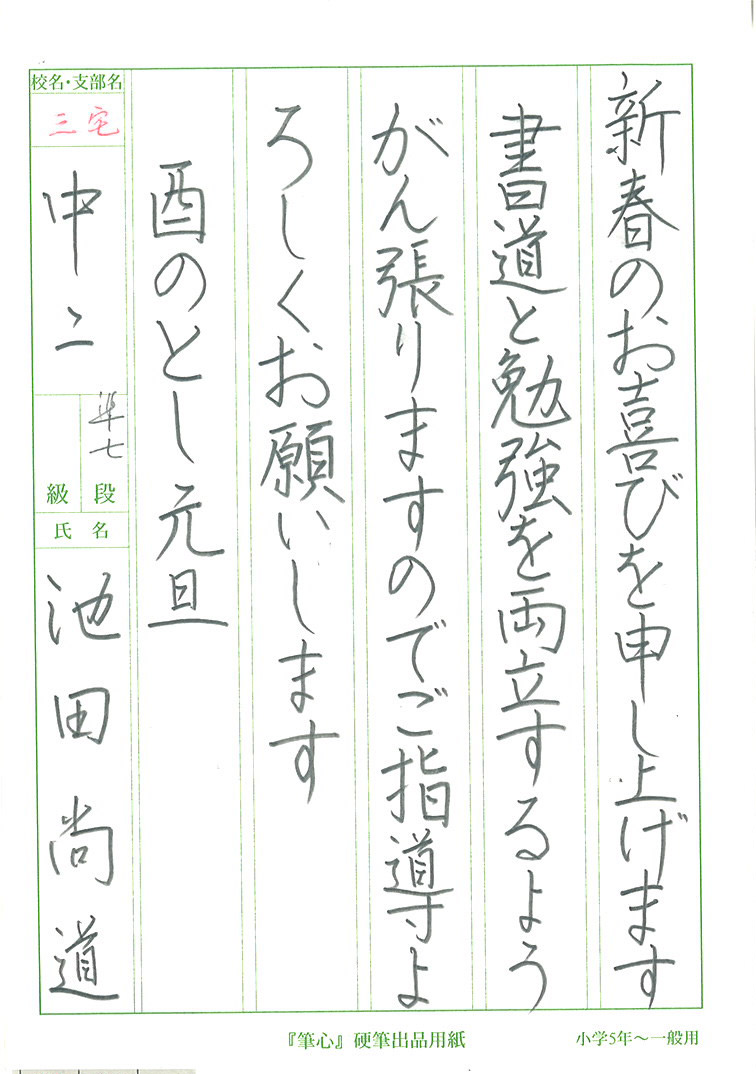 新春のお喜びを申し上げます
書道と勉強を両立するよう
がん張りますのでご指導よ
ろしくお願いします
酉のとし元旦
校名・支部名
三宅
中二
準七
級 段
氏名
池田尚道
『筆心』硬筆出品用紙
小学5年～一般用